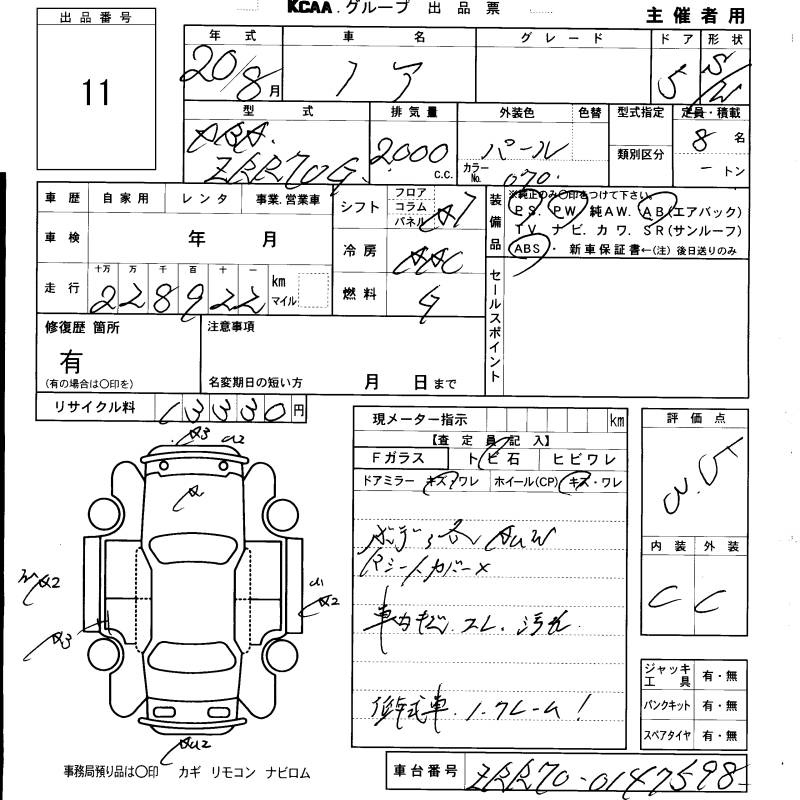 KCAA.グループ 出品票
主催者用
出品番号
11
年式 車名 グレード ドア 形状
20/8月 ノア 5 S/W
型式 排気量 外装色 色替 型式指定 定員・積載
DBA. ZRR70G 2000 C.C. パール カラーNo. 070 類別区分 8 名
ー トン
車歴 自家用 レンタ 事業.営業車
車検 年 月
走行 十万 万 千 百 十 一 km マイル
228922
シフト フロア コラム パネル AT
冷房 AAC
燃料 G
装備品
※純正のみ〇印をつけて下さい。
PS. PW 純AW. AB(エアバック)
TV ナビ. カワ. SR(サンルーフ)
ABS・ 新車保証書←(注)後日送りのみ
セールスポイント
修復歴 箇所
有
(有の場合は〇印を)
注意事項
名変期日の短い方 月 日まで
リサイクル料 13330円
現メーター指示 km
【査定員記入】
Fガラス トビ石 ヒビワレ
ドアミラー キズ・ワレ ホイール(CP) キズ・ワレ
ボディ各AUW
Rシートカバー×
車内キズ.スレ.汚れ
低年式車.ノークレーム!
評価点
内装 外装
C C
ジャッキ工具 有・無
パンクキット 有・無
スペアタイヤ 有・無
A3 U2
A
A2
U1
A2
A3
AU2
事務局預り品は〇印 カギ リモコン ナビロム
車台番号 ZRR70-0147598